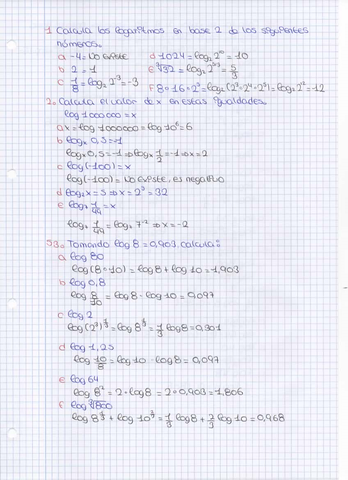 1 Calcula los logaritmos en base 2 de los siguientes
números.
a -4 = No Existe d 1024 = log₂ 2¹⁰ = 10
b 2 = 1 e ³√32 = log₂ 2^5/3 = 5/3
c 1/8 = log₂ 2⁻³ = -3 F 8·16·2⁵ = log₂ (2³·2⁴·2⁵) = log₂ 2¹² = 12
2. Calcula el valor de x en estas igualdades.
log 1000000 = x
a x = log 1000000 = log 10⁶ = 6
b logₓ 0,5 = -1
logₓ 0,5 = -1 ⇒ logₓ 1/2 = -1 ⇒ x = 2
c log (-100) = x
log (-100) = No Existe, es negativo
d log₂ x = 5 ⇒ x = 2⁵ = 32
e log₇ 1/49 = x
log₇ 1/49 = log₇ 7⁻² ⇒ x = -2
53. Tomando log 8 = 0,903, calcula:
a log 80
log (8·10) = log 8 + log 10 = 1,903
b log 0,8
log 8/10 = log 8 - log 10 = 0,097
c log 2
log (2³)^1/3 = log 8^1/3 = 1/3 log 8 = 0,301
d log 1,25
log 10/8 = log 10 - log 8 = 0,097
e log 64
log 8² = 2·log 8 = 2·0,903 = 1,806
f log ³√800
log 8^1/3 + log 10^2/3 = 1/3 log 8 + 2/3 log 10 = 0,968